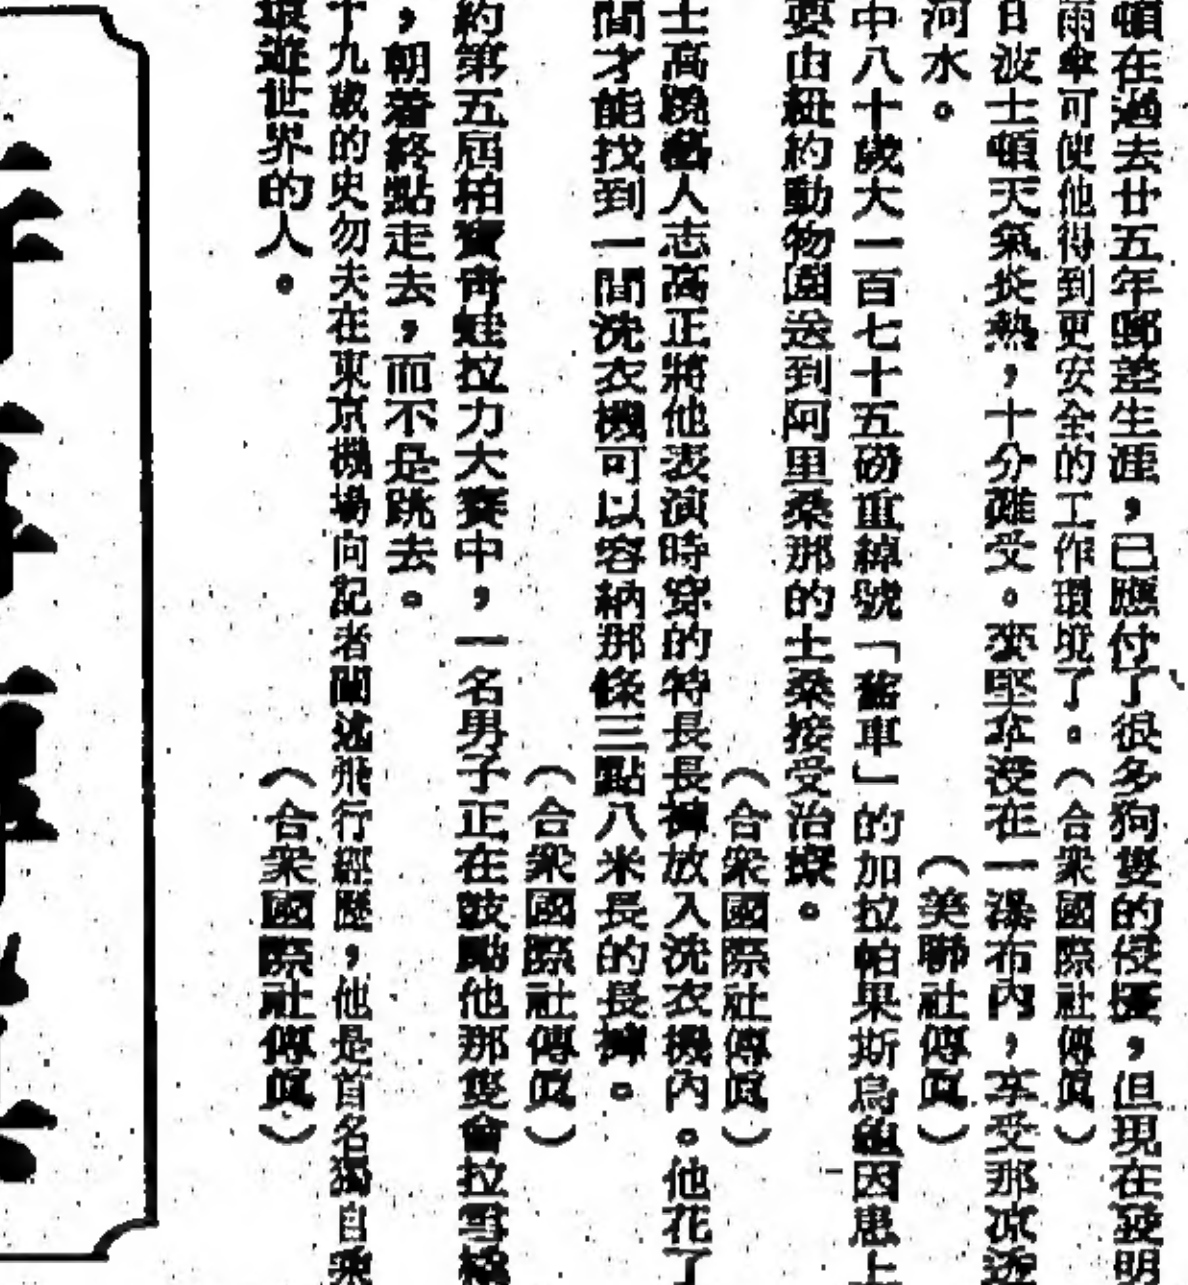 頓在過去廿五年郵差生涯，已應付了很多狗隻的侵擾，但現在發明
雨傘可使他得到更安全的工作環境了。（合衆國際社傳眞）
日波士頓天氣炎熱，十分難受。麥堅拿浸在一瀑布內，享受那凉透
河水。（美聯社傳眞）
中八十歲大一百七十五磅重綽號「舊車」的加拉帕果斯烏龜因患上
要由紐約動物園送到阿里桑那的土桑接受治療。
（合衆國際社傳眞）
士高蹺藝人志高正將他表演時穿的特長長褲放入洗衣機內。他花了
間才能找到一間洗衣機可以容納那條三點八米長的長褲。
（合衆國際社傳眞）
約第五屆柏賓靑蛙拉力大賽中，一名男子正在鼓勵他那隻會拉雪橇
，朝着終點走去，而不是跳去。
十九歲的史勿夫在東京機場向記者闡述飛行經歷，他是首名獨自乘
環遊世界的人。（合衆國際社傳眞）